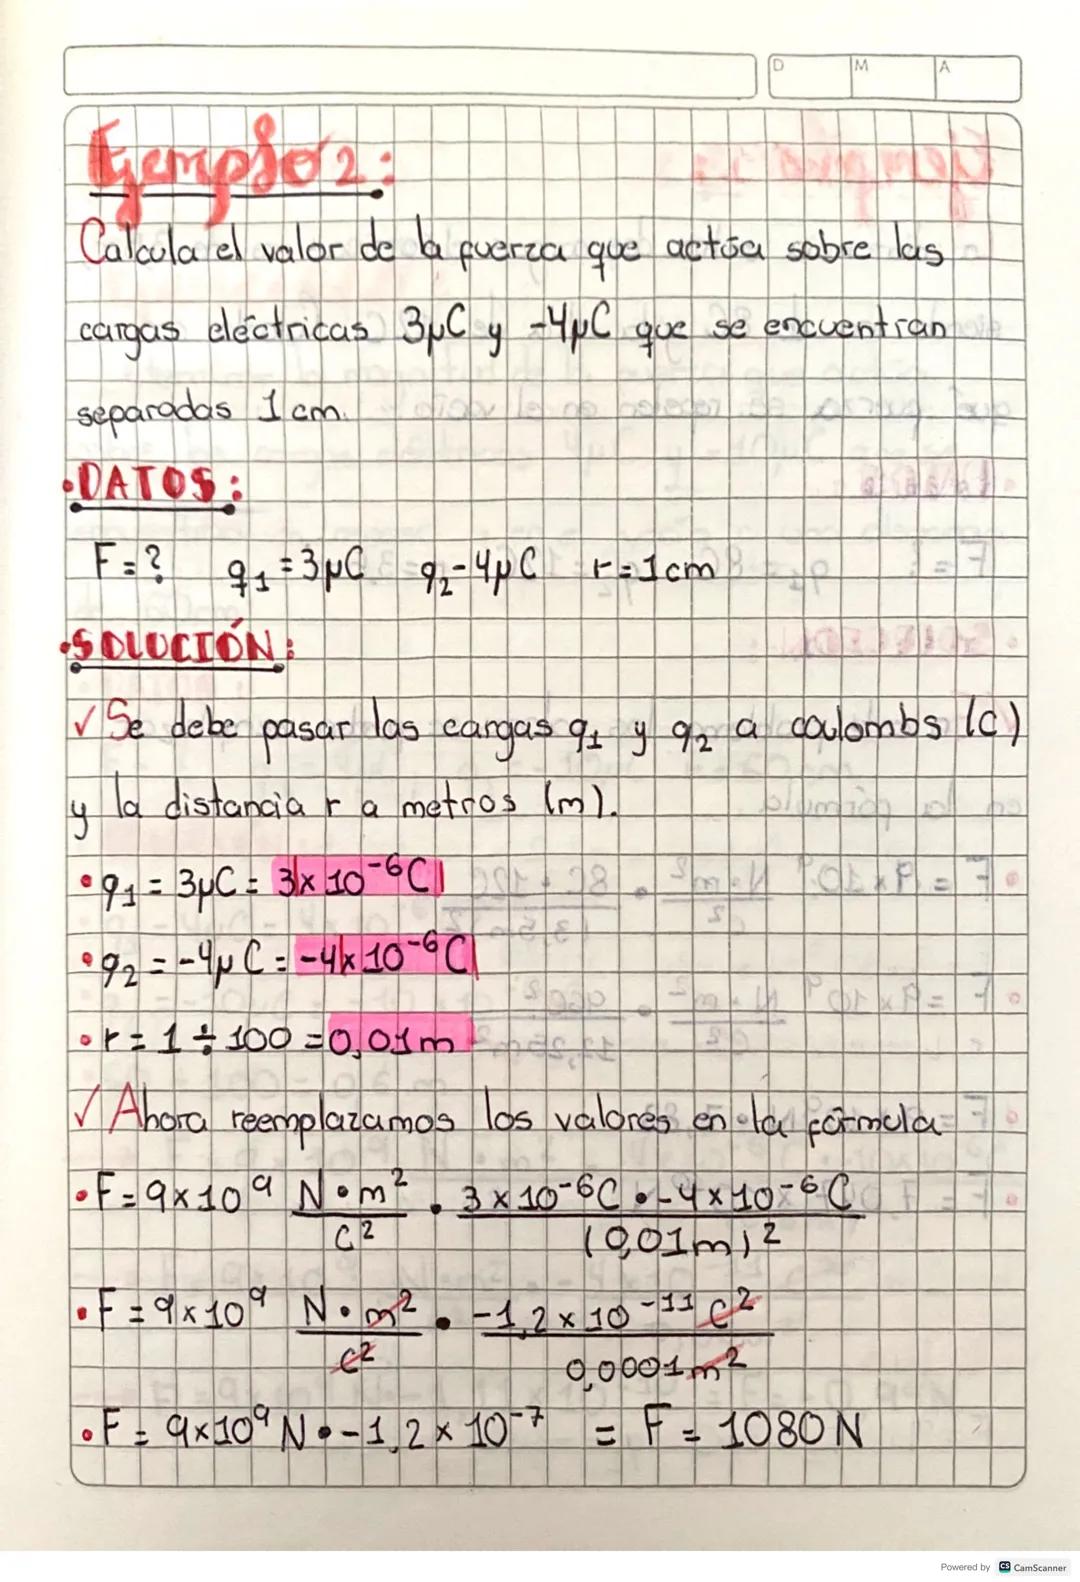 D M A
Ejemplo 2:
Calcula el valor de la fuerza que actúa sobre las
cargas eléctricas 3μC y -4μC que se encuentran
separadas 1 cm.
•DATOS:
F=? q₁=3μC q₂-4μC r=1cm
•SOLUCIÓN:
✓ Se debe pasar las cargas q₁ y q₂ a coulombs (C)
y la distancia r a metros (m).
• q₁ = 3μC = 3x10⁻⁶C
• q₂ = -4μC = -4x10⁻⁶C
• r = 1 ÷ 100 = 0,01m
✓ Ahora reemplazamos los valores en la fórmula
• F=9x10⁹ N•m²/C² • 3x10⁻⁶C•-4x10⁻⁶C/(0,01m)²
• F=9x10⁹ N•m²/C² • -1,2x10⁻¹¹C²/0,0001m²
• F = 9x10⁹N•-1,2x10⁻⁷ = F = 1080N
Powered by CS CamScanner